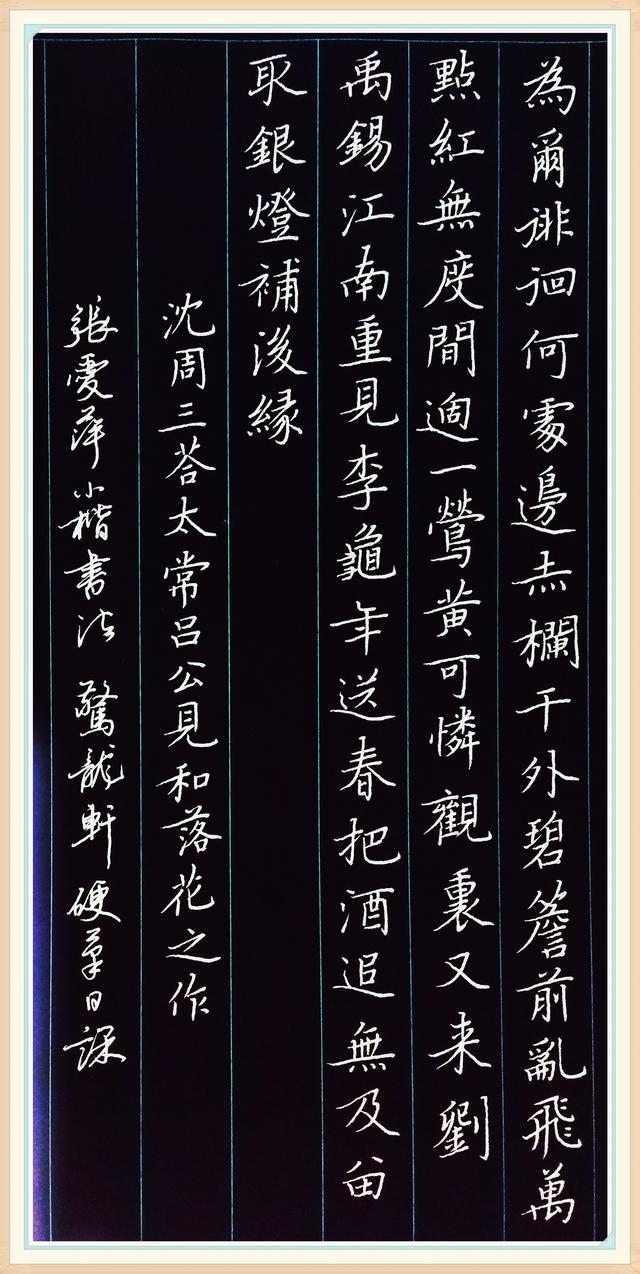 為爾徘徊何處邊赤欄干外碧簷前亂飛萬
點紅無度間過一鶯黃可憐觀裏又来劉
禹錫江南重見李龜年送春把酒追無及留
取銀燈補後緣
沈周三荅太常呂公見和落花之作
張雯萍小楷書法 驚龍軒 硬筆日課